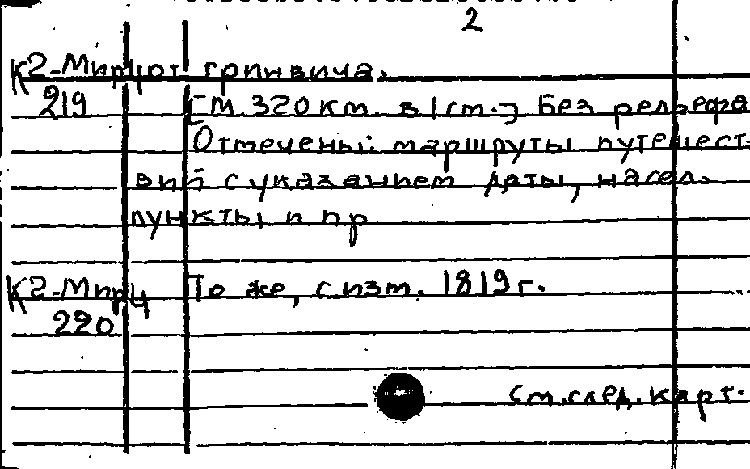 2
К2-Мирц от Гринвича.
219 [М. 320 км. в 1 см.] Без рельефа
Отмечены маршруты путешест-
вий с указанием даты, насел.
пункты и пр
К2-Мирц То же, с изм. 1819 г.
220
См. след. карт.